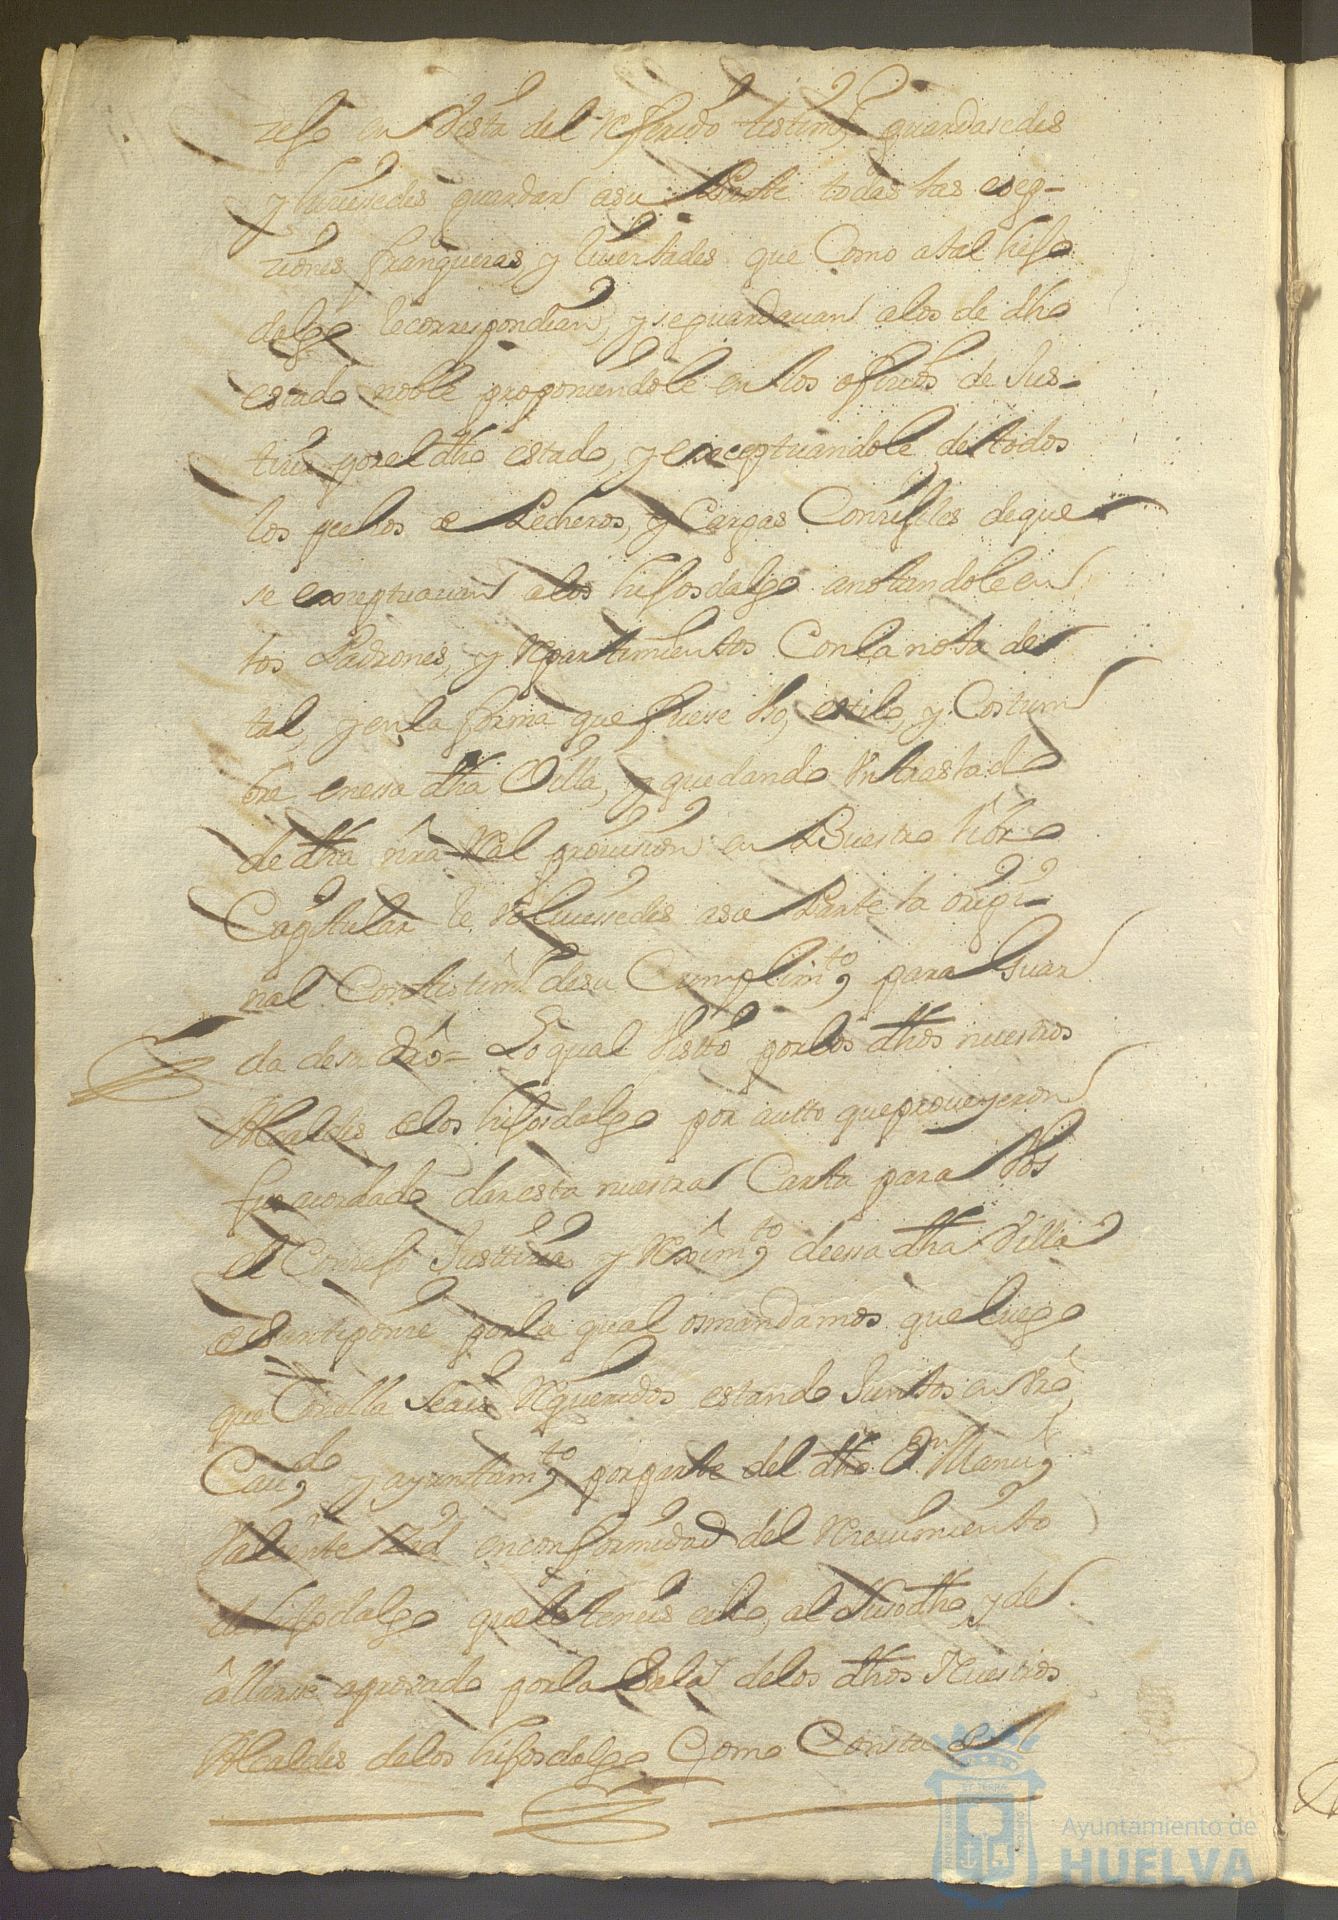 zejo en Vista del referido testimo, guardasedes
y hiciesedes guardar a su Parte todas las esep-
ziones franquezas, y livertades que Como a tal hijo
dalgo le correspondian, y se guardavan a los de dho
estado noble proponiendole en los oficios de Jus-
ticia por el dho estado, y exceptuandole de todos
los pechos de Pecheros, y Cargas Conzejiles de que
se exceptuavan a los hijosdalgo anotandole en
los Padrones, y Repartimientos Con la nota de
tal, y en la forma que fuese Vso, estilo, y Costum
bre en essa dha Villa, y quedando Vn traslado
de dha nra Real provision en Vuestro libro
Capitular le volviessedes a su Parte la origi-
nal Con testimo de su Cumplimto para Guar
da de su dro= Lo qual Visto por los dhos nuestros
Alcaldes de los hijosdalgo por autto que proveyeron
fue acordado dar esta nuestra Carta para Vos
el Conzejo Justizia y Reximto de essa dha Villa
de Santiponze por la qual os mandamos que luego
que Con ella seais Requeridos estando Juntos en vro
Cavdo y ayuntamto por parte del dho Dn Manl
Valiente en conformidad del Recivimiento
de hijodalgo que le teneis echo, al susodho, y de
allarse aprovado por la Sala de los dhos Nuestros
Alcaldes de los hijosdalgo Como Consta del
Ayuntamiento de
HUELVA